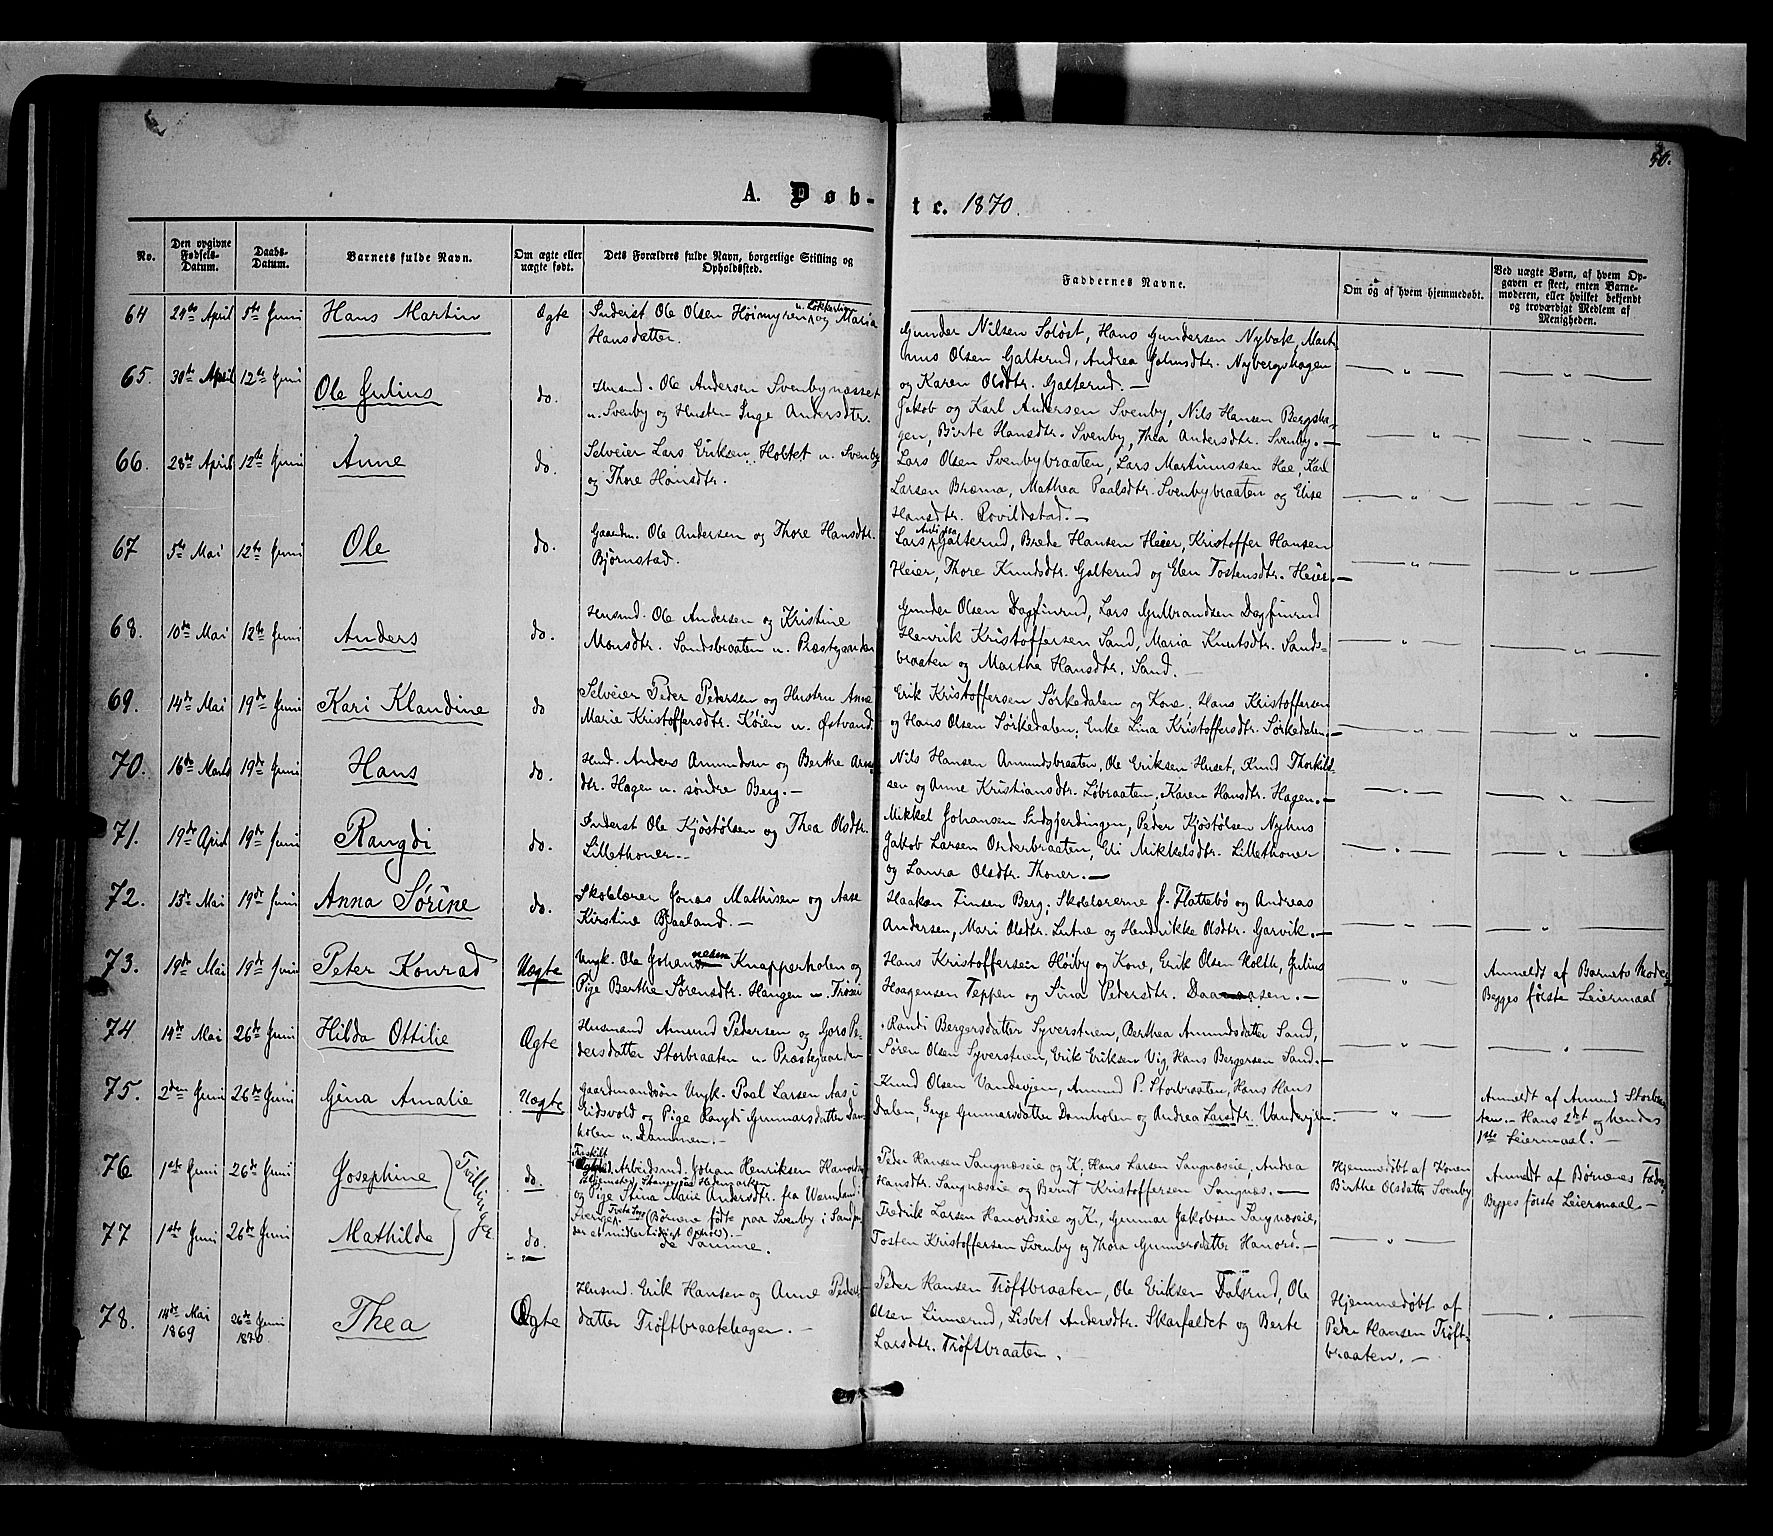 50.
A. Døb-
te. 1870.
No.
Den opgivne
Fødsels-
Datum.
Daabs-
Datum.
Barnets fulde Navn.
Om ægte eller
uægte født.
Dets Forældres fulde Navn, borgerlige Stilling og
Opholdssted.
Faddernes Navne.
Om og af hvem hjemmedøbt.
Ved uægte Børn, af hvem Op-
gaven er skeet, enten Barne-
moderen, eller hvilket bekjendt
og troværdigt Medlem af
Menigheden.
64 29de April 5te Juni Hans Martin Ægte
Inderst Ole Olsen Høimyren u. Løkkerting og Maria
Hansdatter.
Gunder Nilsen Soløst, Hans Gundersen Nybak, Mart-
inus Olsen Galterud, Andrea Johnsdtr. Nybergshagen
og Karen Olsdtr. Galterud. —
65. 30te April 12te Juni Ole Julius do.
Husmd. Ole Andersen Svenbynæsset
u. Svenby og Hustru Inge Andersdtr.
Jakob og Karl Andersen Svenby, Nils Hansen Bergsha-
gen, Birte Hansdtr. Svenby, Thea Andersdtr. Svenby. —
66. 28de April 12te Juni Anne do.
Selveier Lars Eriksen Holtet u. Svenby
og Thore Hansdtr.
Lars Olsen Svenbybraaten, Lars Martinussen Hae, Karl
Larsen Bræma, Mathea Paalsdtr. Svenbybraaten og Elise
Hansdtr. Rovildstad. —
67 5te Mai 12te Juni Ole do.
Gaardm. Ole Andersen og Thore Hansdtr.
Bjørnstad.
Lars Galterud, Brede Hansen Heier, Kristoffer Hansen
Heier, Thore Knudsdtr. Galterud og Elen Tostensdtr. Heier. —
68. 10de Mai 12te Juni Anders do.
Husmd. Ole Andersen og Kristine
Monsdtr. Sandsbraaten u. Præstegaarden
Gunder Olsen Dagfinrud, Lars Gulbrandsen Dagfinrud
Henrik Kristoffersen Sand, Maria Knutsdtr. Sands-
braaten og Marthe Hansdtr. Sand. —
69. 14de Mai 19de Juni Kari Klandine do
Selveier Peder Pedersen og Hustru Anne
Marie Kristoffersdtr. Køien u. Østvand.
Erik Kristoffersen Sørkedalen og Kone, Hans Kristoffersen
og Hans Olsen Sørkedalen, Enke Lina Kristoffersdtr. Sørkedalen. —
70. 16de Marts 19de Juni Hans do.
Husd. Anders Amundsen og Berthe Arnes-
dtr. Hagen u. søndre Berg. —
Nils Hansen Amundsbraaten, Ole Eriksen Huset, Knud Thorkild-
sen og Anne Kristiansdtr. Løbraaten, Karen Hansdtr. Hagen. —
71. 19de April 19de Juni Rangdi do.
Inderst Ole Kjøstølsen og Thea Olsdtr.
Lillethoner. —
Mikkel Johansen Indgjerdingen, Peder Kjøstølsen Nyhus
Jakob Larsen Orderbraaten, Eli Mikkelsdtr. Lillethoner
og Laura Olsdtr. Thoner. —
72. 13de Mai 19de Juni Anna Sørine do.
Skolelærer Jonas Mathisen og Aase
Kirstine Bjaaland. —
Haaken Finsen Berg, Skolelærerne J. Flattebø og Andreas
Andersen, Mari Olsdtr. Lutne og Hendrikke Olsdtr. Garvik. —
73. 19de Mai 19de Juni Peter Konrad Uægte
Ungk. Ole Johannesen Knapperholen og
Pige Berthe Sørensdtr. Haugen u. Trøsei
Hans Kristoffersen Høiby og Kone, Erik Olsen Holth, Julius
Haagensen Teppen og Sina Pedersdtr. Daa . —
Anmeldt af Barnets Moder
Begges første Leiermaal
74 19de Mai 26de Juni Hilda Ottilie Ægte
Husmand Amund Pedersen og Goro Pe-
dersdatter Storbraaten u. Præstegaarden
Randi Bergersdatter Syverstuen, Berthea Amundsdatter Sand,
Søren Olsen Syverstuen, Erik Eriksen Vig, Hans Bergersen Sand. —
75. 2den Juni 26de Juni Gina Amalie Uægte
Gaardmandsøn Ungk. Paal Larsen Aas, i
Eidsvold og Pige Rangdi Gunnarsdatter Dam-
holen u. Dammen. —
Knud Olsen Vandevjen, Amund P. Storbraaten, Hans Hans
Dalen, Inge Gunnarsdatter Damholen og Andrea Larsdtr. Vandevjen.
Anmeldt af Amund Storbraa-
ten. Hans 2det og hendes
1ste Leiermaal. —
76 1ste Juni 26de Juni Josephine } Tvillinger do.
Fraskilt
Arbeidsmd. Johan Henriksen
Stange paa Hedemarken
og Pige Stina Marie Andersdtr. fra Wermland i
Sverige. (Børnene fødte paa Svenby i Sand
et midlertidigt Ophold). —
Peder Hansen Sangnæseie og K., Hans Larsen Sangnæseie, Andrea
Hansdtr. Sangnæseie og Bernt Kristoffersen Sangnæs. —
Hjemmedøbt af Konen
Birthe Olsdatter Svenby
Anmeldt af Børnenes Fader
Begges første Leiermaal. —
77 1ste Juni 26de Juni Mathilde do.
de Samme.
Fredrik Larsen Hanordseie og K., Gunnar Jakobsen Sangnæseie,
Tosten Kristoffersen Svenby og Thora Gunnersdatter Hanord. —
78. 14de Mai 1869 26de Juni 1870 Thea Ægte
Husmd. Erik Hansen og Anne Peders-
datter Trøftbraatehagen. —
Peder Hansen Trøftbraaten, Ole Eriksen Dalsrud, Ole
Olsen Linnerud, Lisbet Andersdtr. Skarfaldet og Berte
Larsdtr. Trøftbraaten.
Hjemmedøbt af
Peder Hansen Trøft-
braaten. —